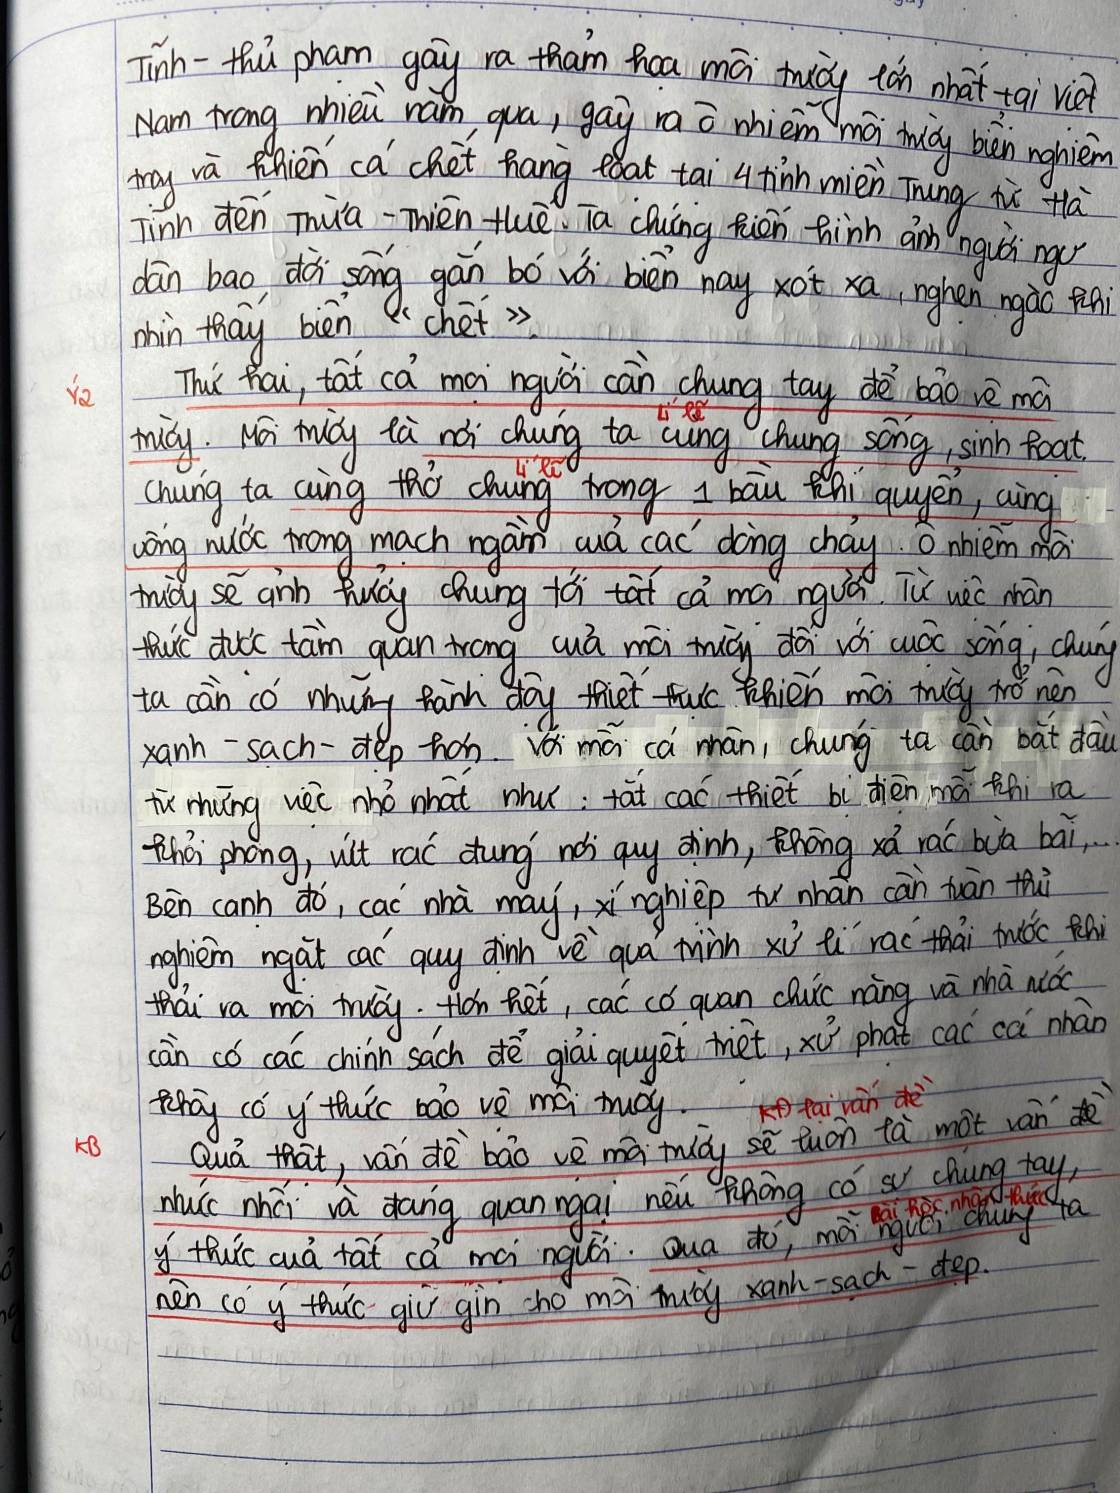 Tĩnh - thủ phạm gây ra thảm họa môi trường lớn nhất tại Việt
Nam trong nhiều năm qua, gây ra ô nhiễm môi trường biển nghiêm
trọng và khiến cá chết hàng loạt tại 4 tỉnh miền Trung từ Hà
Tĩnh đến Thừa - Thiên Huế. Ta chứng kiến hình ảnh người ngư
dân bao đời sống gắn bó với biển nay xót xa, nghẹn ngào khi
nhìn thấy biển "chết".
Ý2 Thứ hai, tất cả mọi người cần chung tay để bảo vệ môi
lí lẽ
trường. Môi trường là nơi chúng ta cùng chung sống, sinh hoạt.
lí lẽ
Chúng ta cùng thở chung trong 1 bầu khí quyển, cùng
uống nước trong mạch ngầm của các dòng chảy. Ô nhiễm môi
trường sẽ ảnh hưởng chung tới tất cả mọi người. Từ việc nhận
thức được tầm quan trọng của môi trường đối với cuộc sống, chúng
ta cần có những hành động thiết thực khiến môi trường trở nên
xanh - sạch - đẹp hơn. Với mỗi cá nhân, chúng ta cần bắt đầu
từ những việc nhỏ nhất như: tắt các thiết bị điện mỗi khi ra
khỏi phòng, vứt rác đúng nơi quy định, không xả rác bừa bãi,...
Bên cạnh đó, các nhà máy, xí nghiệp tư nhân cần tuân thủ
nghiêm ngặt các quy định về quá trình xử lí rác thải trước khi
thải ra môi trường. Hơn hết, các cơ quan chức năng và nhà nước
cần có các chính sách để giải quyết triệt, xử phạt các cá nhân
không có ý thức bảo vệ môi trường.
KĐ lại vấn đề
KB Quả thật, vấn đề bảo vệ môi trường sẽ luôn là một vấn đề
nhức nhối và đáng quan ngại nếu không có sự chung tay,
Bài học nhận thức
ý thức của tất cả mọi người. Qua đó, mỗi người chúng ta
nên có ý thức giữ gìn cho môi trường xanh - sạch - đẹp.